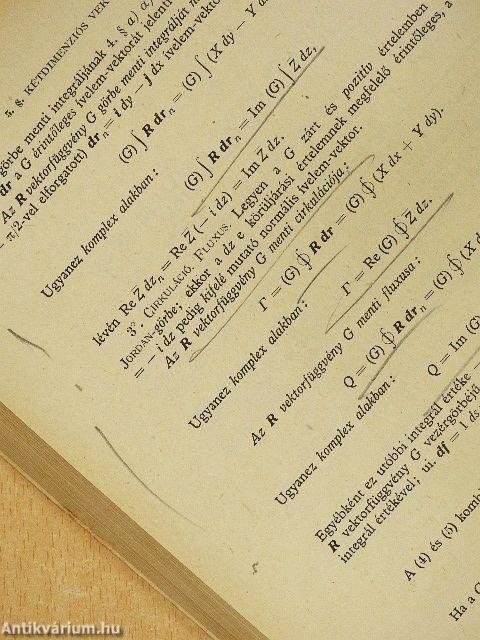 5. §. KÉTDIMENZIÓS VEK
görbe menti integráljának 4. § a)
dr a G érintőleges ívelem-vektorát jelenti
Az R vektorfüggvény G görbe menti integrálját
− π/2-vel elforgatott) dr_n = i dy − j dx ívelem-vektor
(G) ∫ R dr_n = (G) ∫ (X dy − Y d
Ugyanez komplex alakban:
(G) ∫ R dr_n = Im (G) ∫ Z̄ dz,
lévén Re Z̄ dz_n = Re Z̄ (− i dz) = Im Z̄ dz.
3°. CIRKULÁCIÓ. FLUXUS. Legyen a G zárt és pozitív értelemben
JORDAN-görbe; ekkor a dz e körüljárási értelemnek megfelelő érintőleges, a
= − i dz pedig kifelé mutató normális ívelem-vektor.
Az R vektorfüggvény G menti cirkulációja:
Γ = (G) ∮ R dr = (G) ∮ (X dx + Y dy).
Ugyanez komplex alakban:
Γ = Re (G) ∮ Z̄ dz.
Az R vektorfüggvény G menti fluxusa:
Q = (G) ∮ R dr_n = (G) ∮ (X
Ugyanez komplex alakban:
Q = Im (G)
Egyébként ez utóbbi integrál értéke
R vektorfüggvény G vezérgörbéjű
integrál értékével; ui. df = 1 ds
A (4) és (5) komb
Ha a G
Antikvárium.hu